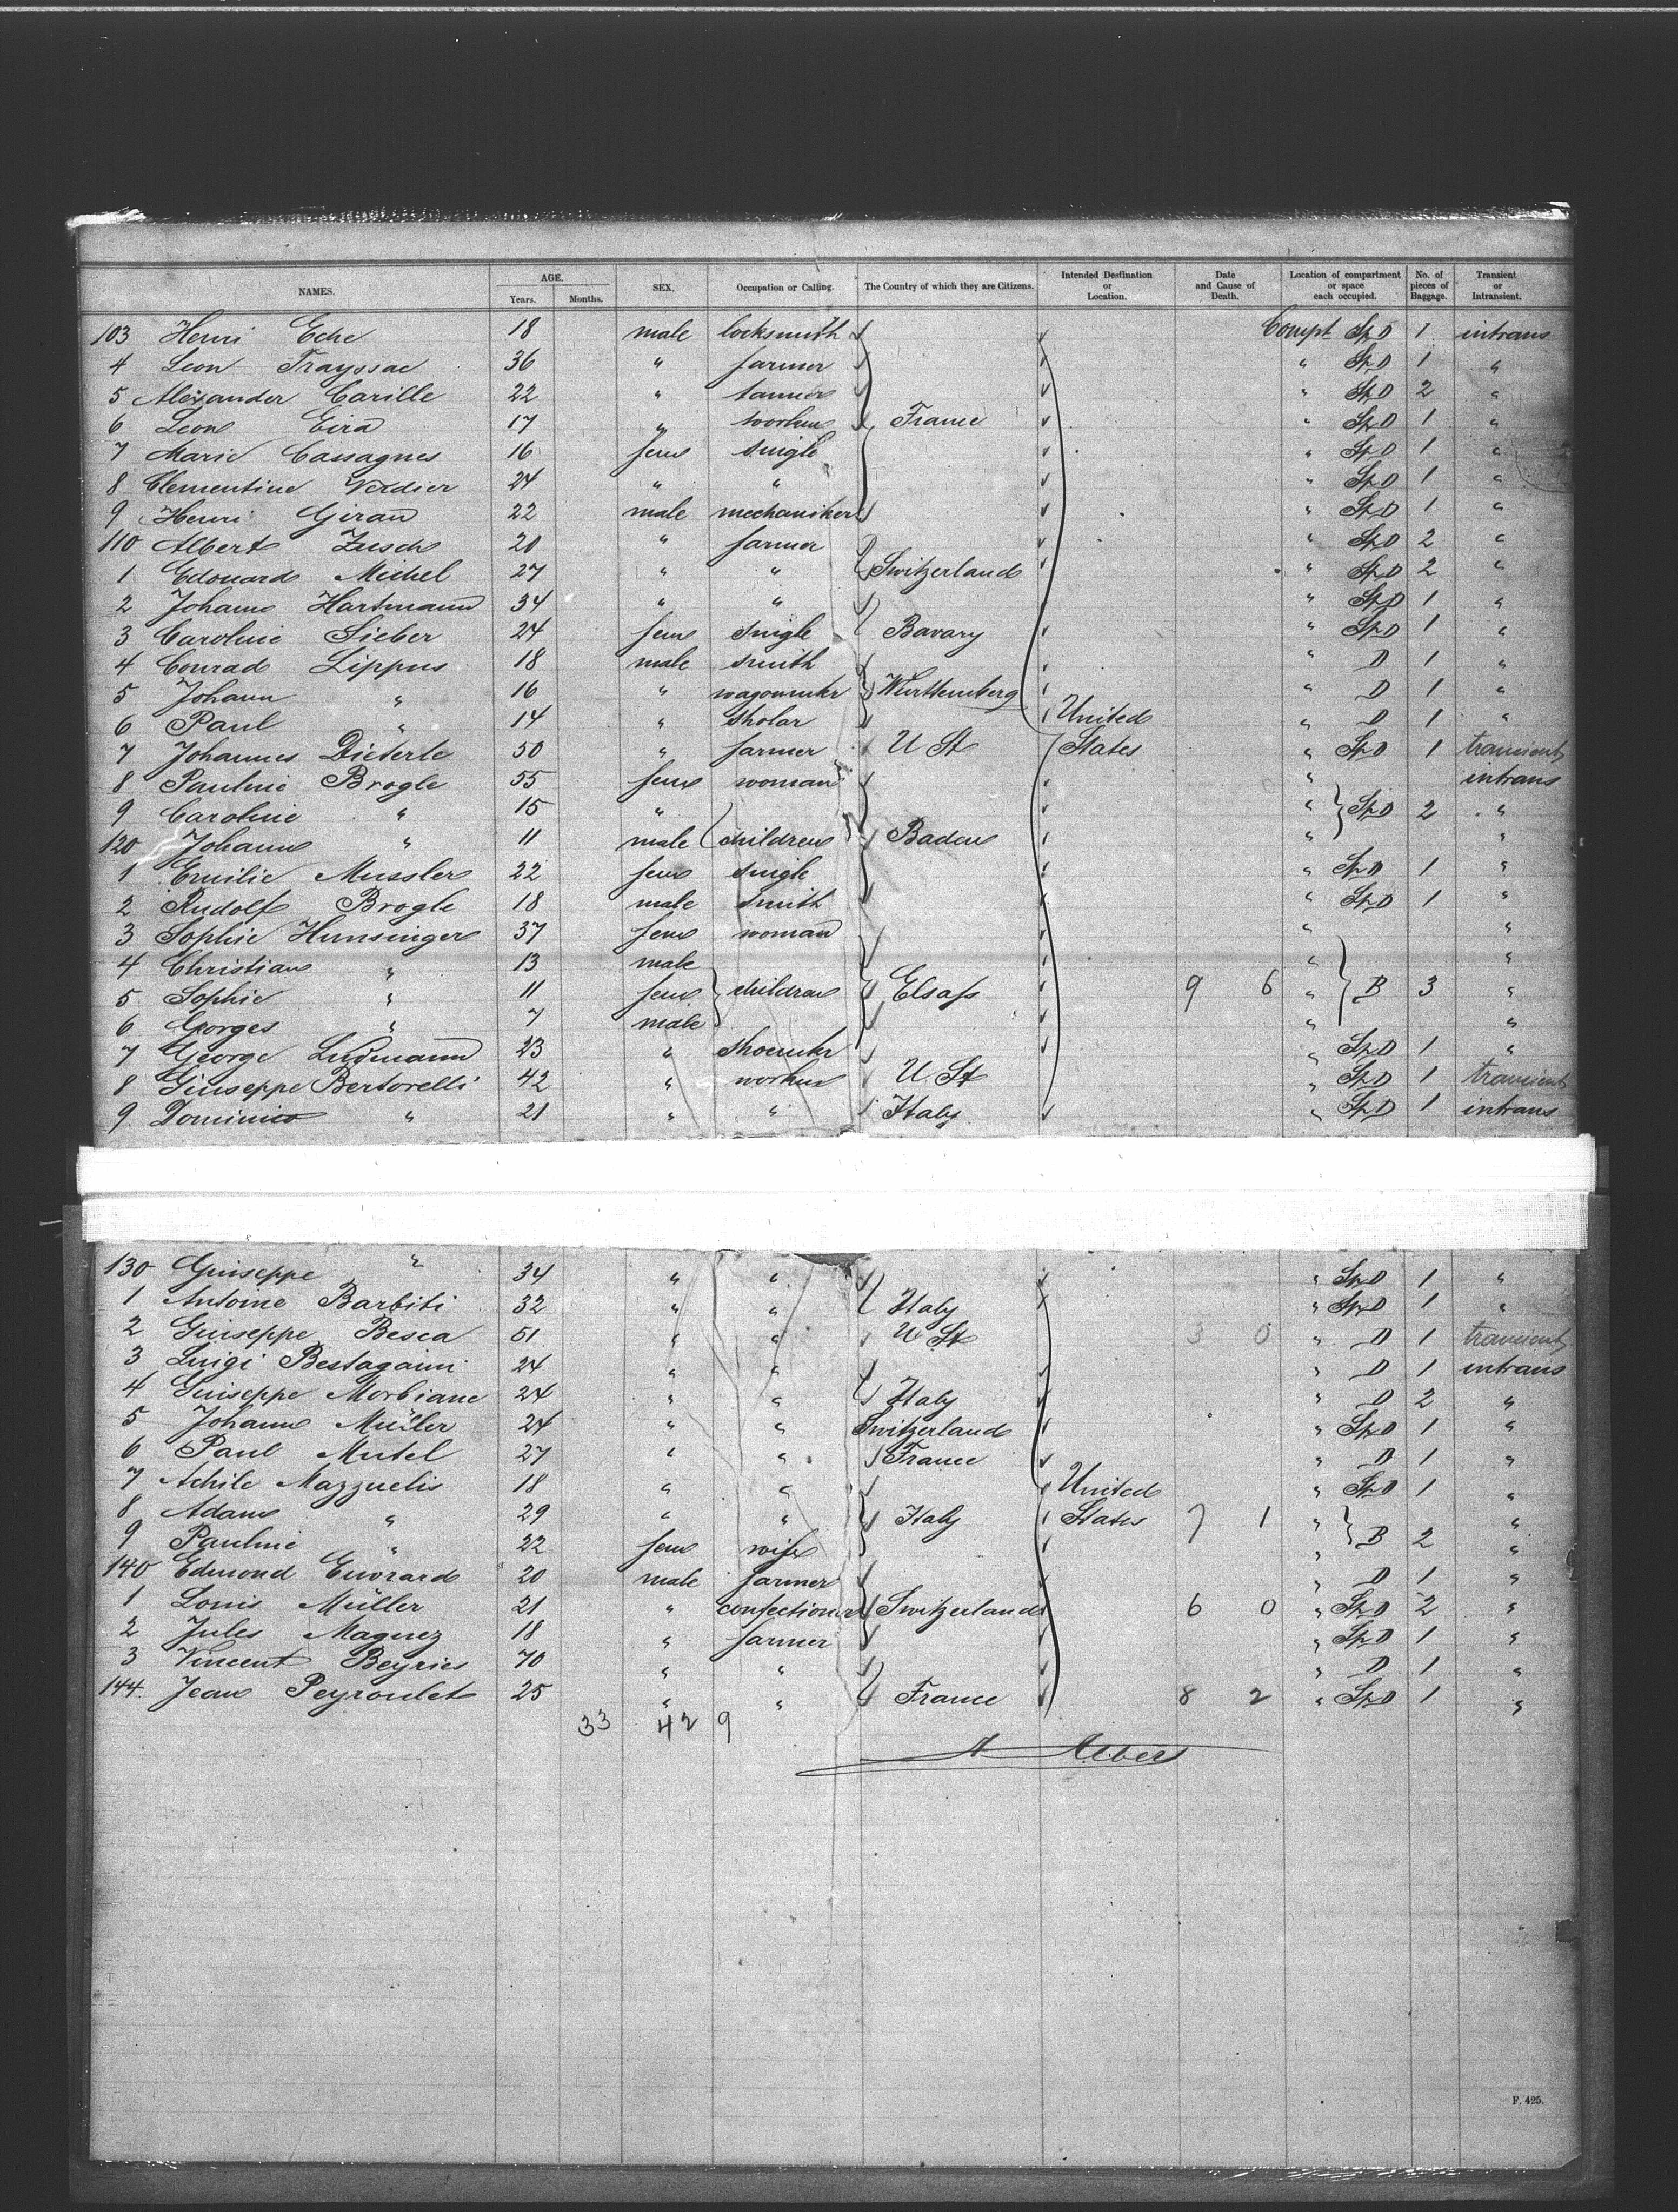 NAMES. AGE. Years. Months. SEX. Occupation or Calling. The Country of which they are Citizens. Intended Destination or Location. Date and Cause of Death. Location of compartment or space each occupied. No. of pieces of Baggage. Transient or Intransient.
103 Henri Eche 18 male locksmith Compt StD 1 intrans
4 Leon Trayssac 36 " farmer " StD 1 "
5 Alexander Carille 22 " tanner " StD 2 "
6 Leon Eira 17 " worker France " StD 1 "
7 Marie Cassagnes 16 fem single " StD 1 "
8 Clementine Verdier 24 " " " StD 1 "
9 Henri Giran 22 male mechaniker " StD 1 "
110 Albert Zusch 20 " farmer " StD 2 "
1 Edouard Michel 27 " " Switzerland " StD 2 "
2 Johann Hartmann 34 " " " StD 1 "
3 Caroline Sieber 24 fem single Bavary " StD 1 "
4 Conrad Lippus 18 male smith " D 1 "
5 Johann " 16 " wagonmkr Württemberg " D 1 "
6 Paul " 14 " sholar United " D 1 "
7 Johannes Dieterle 50 " farmer U St States " StD 1 transient
8 Pauline Brogle 55 fem woman " intrans
9 Caroline " 15 " " StD 2 "
120 Johann " 11 male children Baden " "
1 Emilie Mussler 22 fem single " StD 1 "
2 Rudolf Brogle 18 male smith " StD 1 "
3 Sophie Hunsinger 37 fem woman " "
4 Christian " 13 male " "
5 Sophie " 11 fem children Elsass 9 6 " B 3 "
6 Gorges " 7 male " "
7 George Ludmann 23 " shoemkr " StD 1 "
8 Giuseppe Bertorelli 42 " worker U. St " StD 1 transient
9 Dominico " 21 " " Italy " StD 1 intrans
130 Guiseppe " 34 " " " StD 1 "
1 Antoine Barbiti 32 " " Italy " StD 1 "
2 Guiseppe Besca 51 " " U St 3 0 " D 1 transient
3 Luigi Bestagaini 24 " " " D 1 intrans
4 Guiseppe Morbiane 24 " " Italy " D 2 "
5 Johann Müller 24 " " Switzerland " StD 1 "
6 Paul Mutel 27 " " France " D 1 "
7 Achile Mazzuelis 18 " " United " StD 1 "
8 Adam " 29 " " Italy States 7 1 " "
9 Pauline " 22 fem wife " B 2 "
140 Edmond Euvrard 20 male farmer " D 1 "
1 Louis Müller 21 " confectioner Switzerland 6 0 " StD 2 "
2 Jules Magnez 18 " farmer " StD 1 "
3 Vincent Beyries 70 " " " D 1 "
144. Jean Peyroulet 25 " " France 8 2 " StD 1 "
33 42 9
A Albers
F. 425.